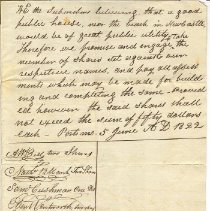 WE the Subscribers believing that a good
public house, near the beach in Newcastle
would be of great public utility
Therefore we promise and engage to take the
number of shares set against our
respective names, and pay all assess-
ments which may be made for build-
ing and completing the same. Provided
however the said shares shall
not exceed the sum of fifty dollars
each - Ports 5 June AD 1822
ten shares
Saml Cushman One Sha